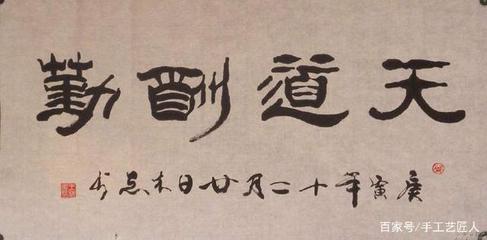 天道酬勤
庚寅年十二月廿日未忘书
百家号/手工艺匠人